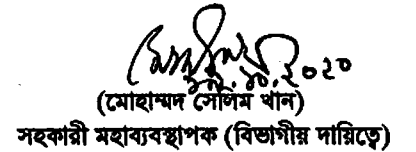 ১৯.১০.২০২০
(মোহাম্মদ সেলিম খান)
সহকারী মহাব্যবস্থাপক (বিভাগীয় দায়িত্বে)